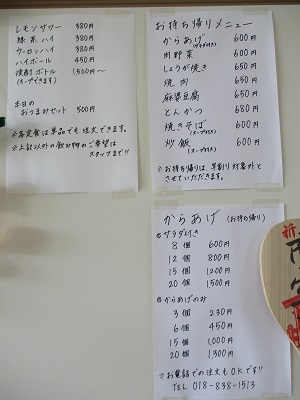 レモンサワー 380円
緑茶ハイ 380円
ウーロンハイ 380円
ハイボール 450円
焼酎ボトル 1500円〜
(キープできます)
本日の
おつまみセット 500円
※各定食は単品でも注文できます。
※上記以外の飲み物のご希望は
スタッフまで!!
お持ち帰りメニュー
からあげ 600円
(サラダ付き)
肉野菜 600円
しょうが焼き 650円
焼肉 650円
麻婆豆腐 650円
とんかつ 680円
焼きそば 600円
(スープ付き)
炒飯 600円
(スープ付き)
※お持ち帰りは、早割り対象外と
させていただきます。
からあげ (お持ち帰り)
サラダ付き
8個 600円
12個 800円
15個 1200円
20個 1,500円
からあげのみ
3個 230円
6個 450円
15個 1,000円
20個 1,300円
※お電話での注文もO.K.です!!
TEL 018-838-1513